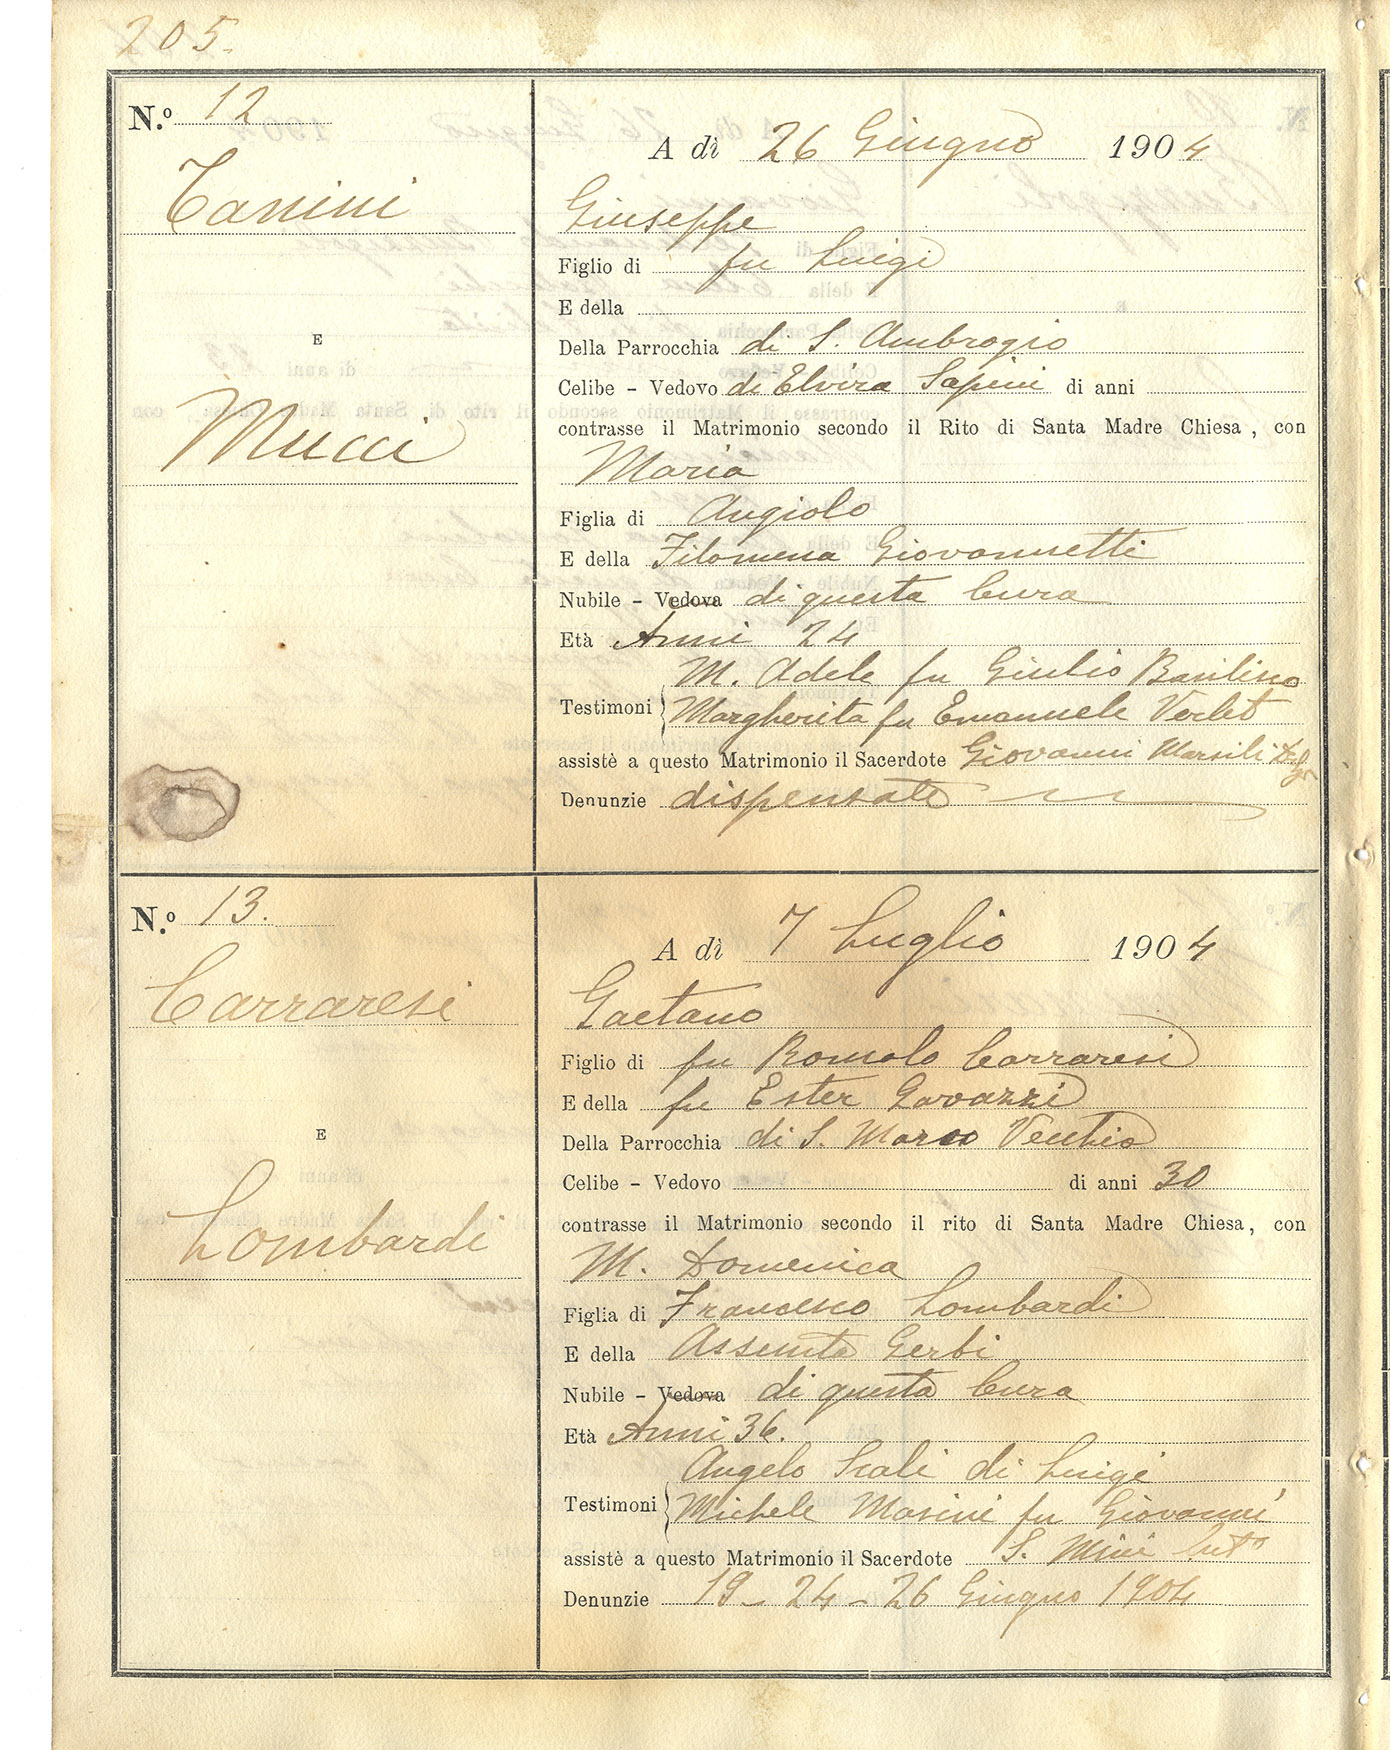 205.
N.º 12
Tanini
E
Mucci
A dì 26 Giugno 1904
Giuseppe
Figlio di fu Luigi
E della
Della Parrocchia di S. Ambrogio
Celibe - Vedovo di Elvira Sapini di anni
contrasse il Matrimonio secondo il Rito di Santa Madre Chiesa, con
Maria
Figlia di Angiolo
E della Filomena Giovannetti
Nubile - Vedova di questa Cura
Età Anni 24
M. Adele fu Giulio Basilisco
Testimoni Margherita fu Emanuele Verlet
assistè a questo Matrimonio il Sacerdote Giovanni Marsili
Denunzie dispensate
N.º 13.
Carraresi
E
Lombardi
A dì 7 Luglio 1904
Gaetano
Figlio di fu Romolo Carraresi
E della fu Ester Gavazzi
Della Parrocchia di S. Marco Vecchio
Celibe - Vedovo di anni 30
contrasse il Matrimonio secondo il rito di Santa Madre Chiesa, con
M. Domenica
Figlia di Francesco Lombardi
E della Assunta Gerbi
Nubile - Vedova di questa Cura
Età Anni 36.
Angelo Scali di Luigi
Testimoni Michele Masini fu Giovanni
assistè a questo Matrimonio il Sacerdote S. Mini
Denunzie 19 - 24 - 26 Giugno 1904